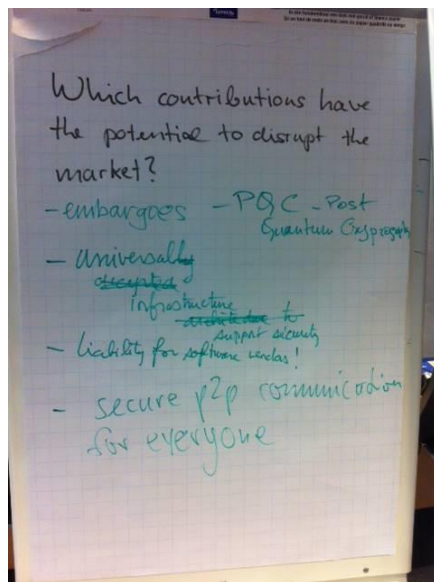 Which contributions have
the potential to disrupt the
market?
- embargoes - PQC - Post
Quantum Cryptography
- universally
accepted
infrastructure
architecture to
support security
- liability for software vendors!
- secure p2p communication
for everyone